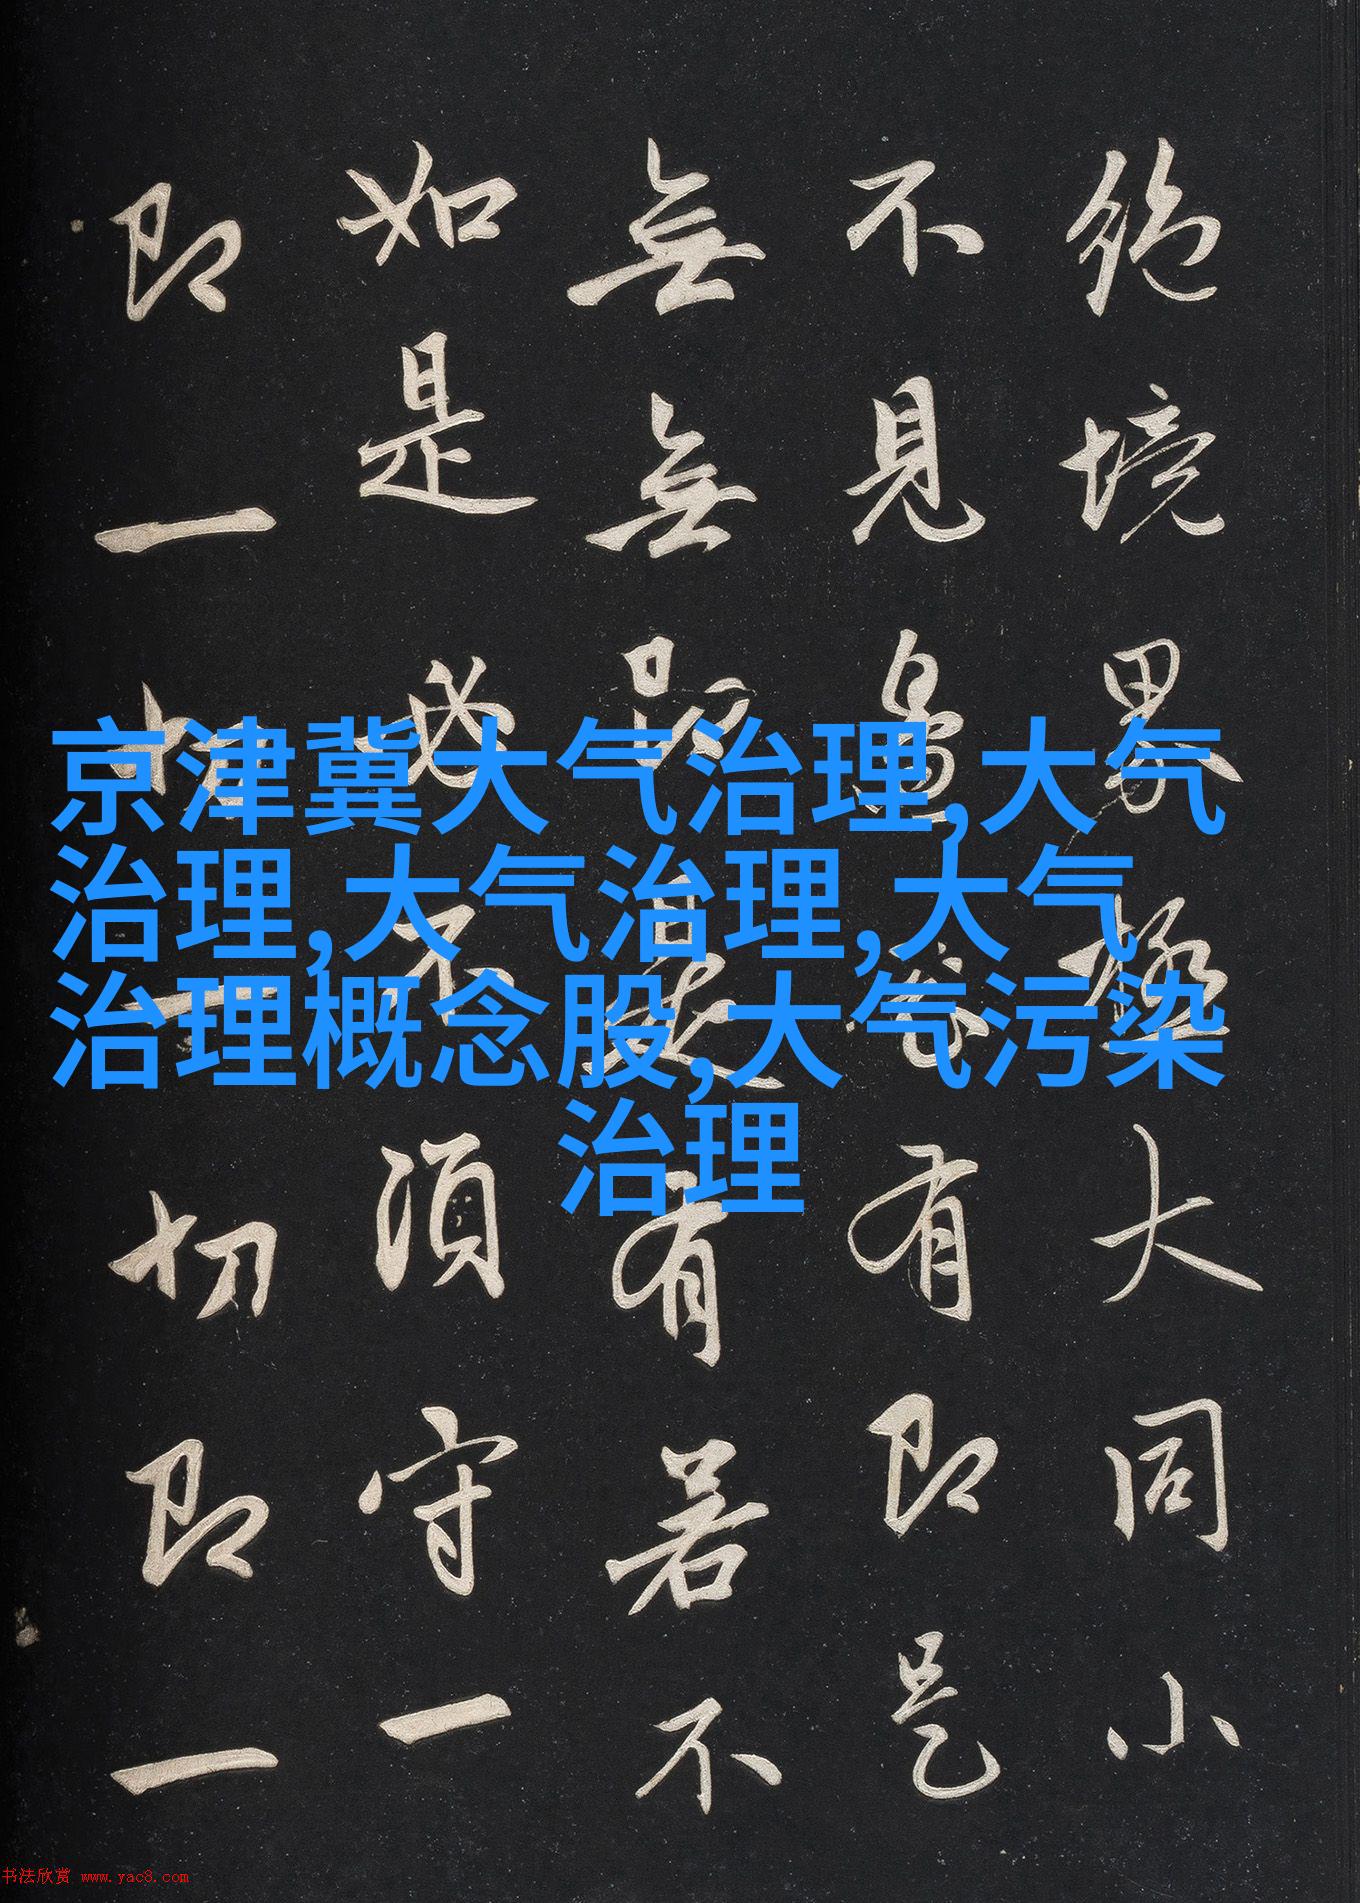 絶境界極大同小
不見邊表有即是
無無即是有若不
如是必不須守一
即一切一切即一
京津冀大气治理,大气
治理,大气治理,大气
治理概念股,大气污染
治理
书法欣赏 www.yac8.com